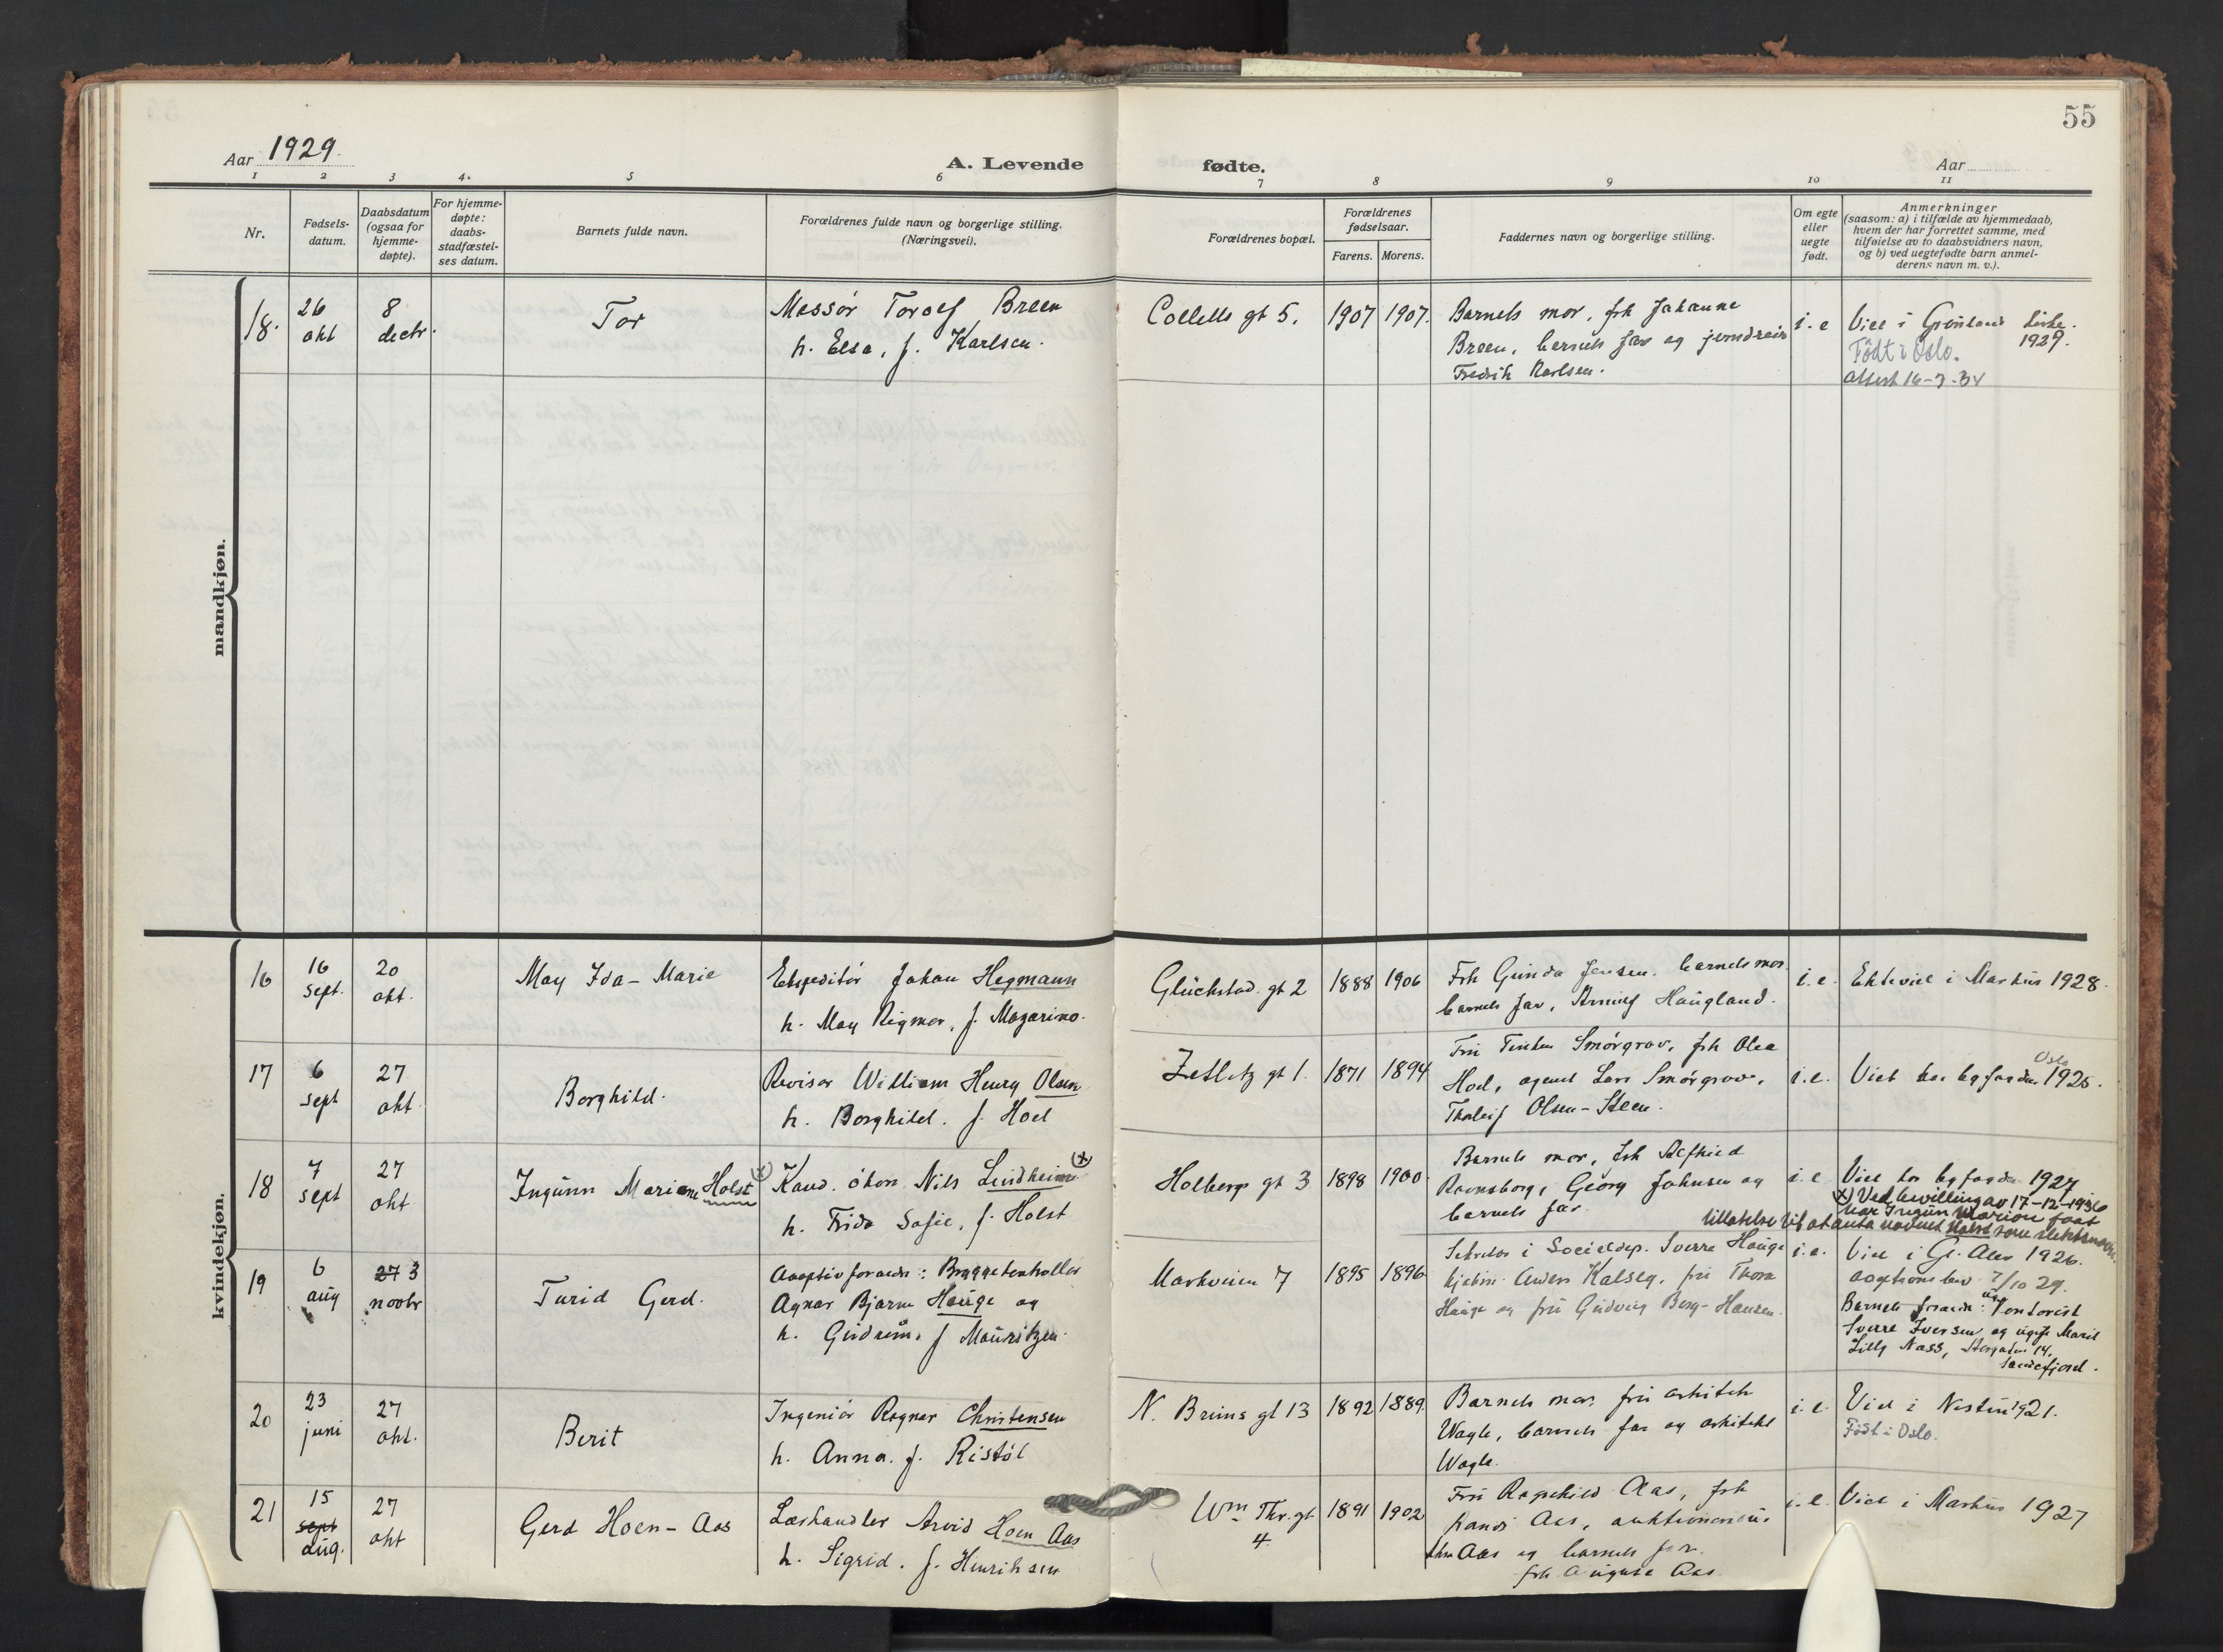 55
Aar 1929.
A. Levende fødte.
Aar
1 2 3 4. 5 6 7 8 9 10 11
Nr.
Fødsels-
datum.
Daabsdatum
(ogsaa for
hjemme-
døpte).
For hjemme-
døpte:
daabs-
stadfæstel-
ses datum.
Barnets fulde navn.
Forældrenes fulde navn og borgerlige stilling.
(Næringsvei).
Forældrenes bopæl.
Forældrenes
fødselsaar.
Farens. Morens.
Faddernes navn og borgerlige stilling.
Om egte
eller
uegte
født.
Anmerkninger
(saasom: a) i tilfælde av hjemmedaab,
hvem der har forrettet samme, med
tilføielse av to daabsvidners navn,
og b) ved uegtefødte barn anmel-
derens navn m. v.).
mandkjøn.
18.
26
okt
8
decbr.
Tor
Massør Torolf Breen
h. Elsa, f. Karlsen.
Colletts gt 5.
1907 1907.
Barnets mor, frk Johanne
Breen, barnets far og
Fredrik Karlsen.
i. e
Viet i Grønland kirke.
1929.
Født i Oslo.
Attest 16-3-34
kvindekjøn.
16
16
sept.
20
okt.
May Ida-Marie
Ekspeditør Johan Hegmann
h. May Rigmor, f. Mazarino.
Glückstad gt 2
1888 1906
Frk Gunda Jensen. barnets mor.
barnets far, Haugland.
i. e.
Ektevict i Markus 1928.
17
6
sept
27
okt.
Borghild.
Revisor William Henry Olsen
h. Borghild. f. Hoel
Zetlitz gt 1.
1871 1894
Fru Smørgrav, frk Olea
Hoel, agent Lars Smørgrav,
Tholeif Olsen-Steen.
i. e.
Viet hos byfogden Oslo 1925.
18
7
sept
27
okt
Ingunn Marione Holst (x)
Kand. økon. Nils Lindheim (x)
h. Frida Sofie, f. Holst
Holberg gt 3
1898 1900
Barnets mor, frk Alfhild
Ravnsborg, Georg Johnsen og
barnets far.
i. e
Viet hos byfogden 1927
(x) Ved bevilling av 17-12-1936
har Ingunn Marione faat
tillatelse til at anta navnet Holst som slektsnavn.
19
6
aug
27 3
novbr
Turid Gerd.
Adoptivforældr:
Agnar Bjarne Hauge og
h. Gudrun, f Mauritzen.
Markveien 7
1895 1896
Sekretær i Socialdep. Sverre Hauge
kjøbm. Kalseg, fru Thora
Hauge og fru Gudveig Berg-Hansen.
i. e.
Viet i Gl. Aker 1926.
adoptionsbev. 7/10 29.
Barnets forældr: ugift kontorist
Sverre Iversen og ugift Marit
Lilly Nass, Storgaten 14,
Sandefjord.
20
23
juni
27
okt.
Berit
Ingeniør Ragnar Christensen
h. Anna. f. Ristøl
N. Bruns gt 13
1892 1889.
Barnets mor, fru arkitekt
Wagle, barnets far og arkitekt
Wagle.
i. e.
Viet i Nestun 1921.
Født i Oslo.
21
15
sept
aug.
27
okt
Gerd Hoen-Aas
Lærhandler Arvid Hoen Aas
h. Sigrid. f. Henriksen
Wm Thr. gt
4.
1891 1902
Fru Ragnhild Aas, frk
Aas, auktionarius
Aas og barnets far.
frk Augusta Aas.
i. e.
Viet i Markus 1927